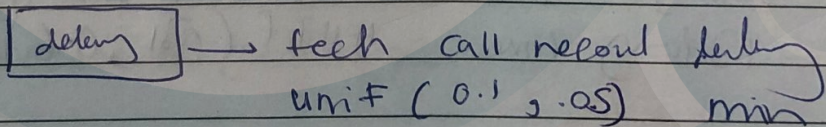 delay → tech call record delay
unif (0.1, .05) min